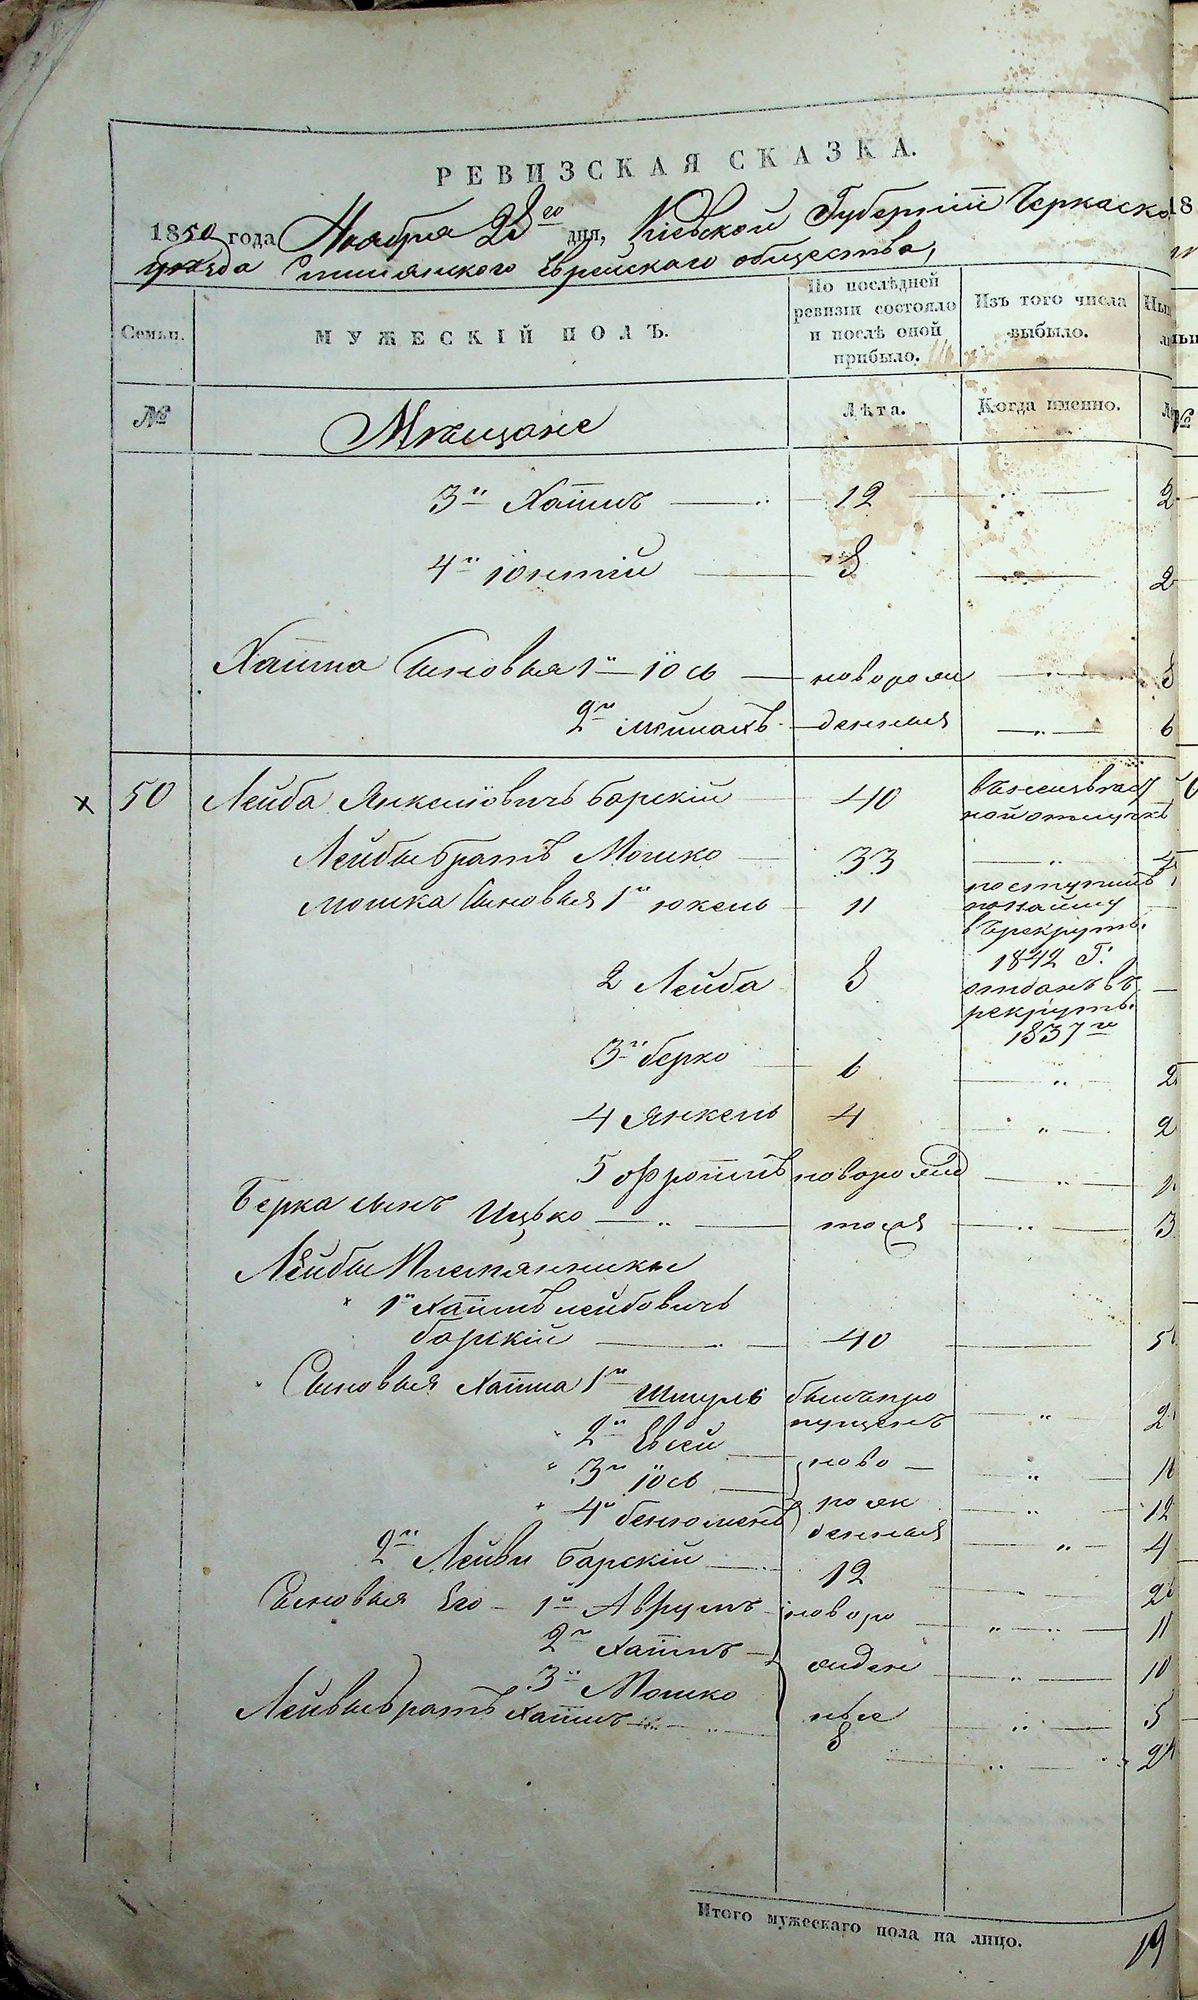 РЕВИЗСКАЯ СКАЗКА.
1850 года Ноября 28го дня, Кіевской Губерніи Черкаско
уезда Смилянского Еврейскаго общества,
Семьи.
МУЖЕСКІЙ ПОЛЪ.
По послѣдней ревизіи состояло и послѣ оной прибыло.
Изъ того числа выбыло.
№
Мѣщане
Лѣта.
Когда именно.
3й Хаимъ 12 2
4й 8 2
Хаима Сыновья 1й Іось новорож 8
2й денныя 6
50 Лейба Янкелiовичъ Барскій 40
Лейбы братъ Мошко 33
Мошка Сыновья 1й Юкель 11 поступилъ
понайму
въ рекруты.
1842 Г.
2 Лейба 8 отданъ въ
рекруты.
1837го
3й Берко 6 2
4 Янкель 4 2
5 Фроимъ новорожд
Берка сынъ Ицько тожя 3
Лейбы Племянники
1й Хаимъ Лейбовичъ
Барскій 40 5
Сыновья Хаима 1й Шмуль былъ про 2
2й Евсей пущенъ
3й Іось ново
4й Бенюменъ рож 12
денныя 4
2й Лейви Барскій 12 2
Сыновья Его 1й Аврумъ новоро 11
2й Хаимъ жден 10
3й Мошко ные 5
Лейвы братъ Хаимъ 8 2
Итого мужескаго пола на лицо. 19